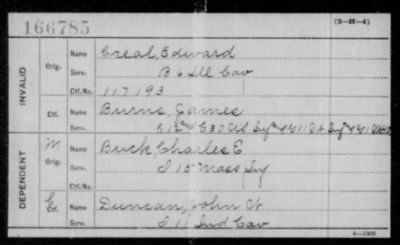 166785
(3—H—4)
INVALID
Orig.
Name Creal, Edward
Serv. B 6 Ill Cav
Ctf. No. 117193
Ctf.
Name Burns, James
Serv.
DEPENDENT
M
Orig.
Name Buck, Charles E
Serv. I 15 Mass Inf
Ctf. No.
C
Ctf.
Name Duncan, John
Serv. I 11 Ind Cav